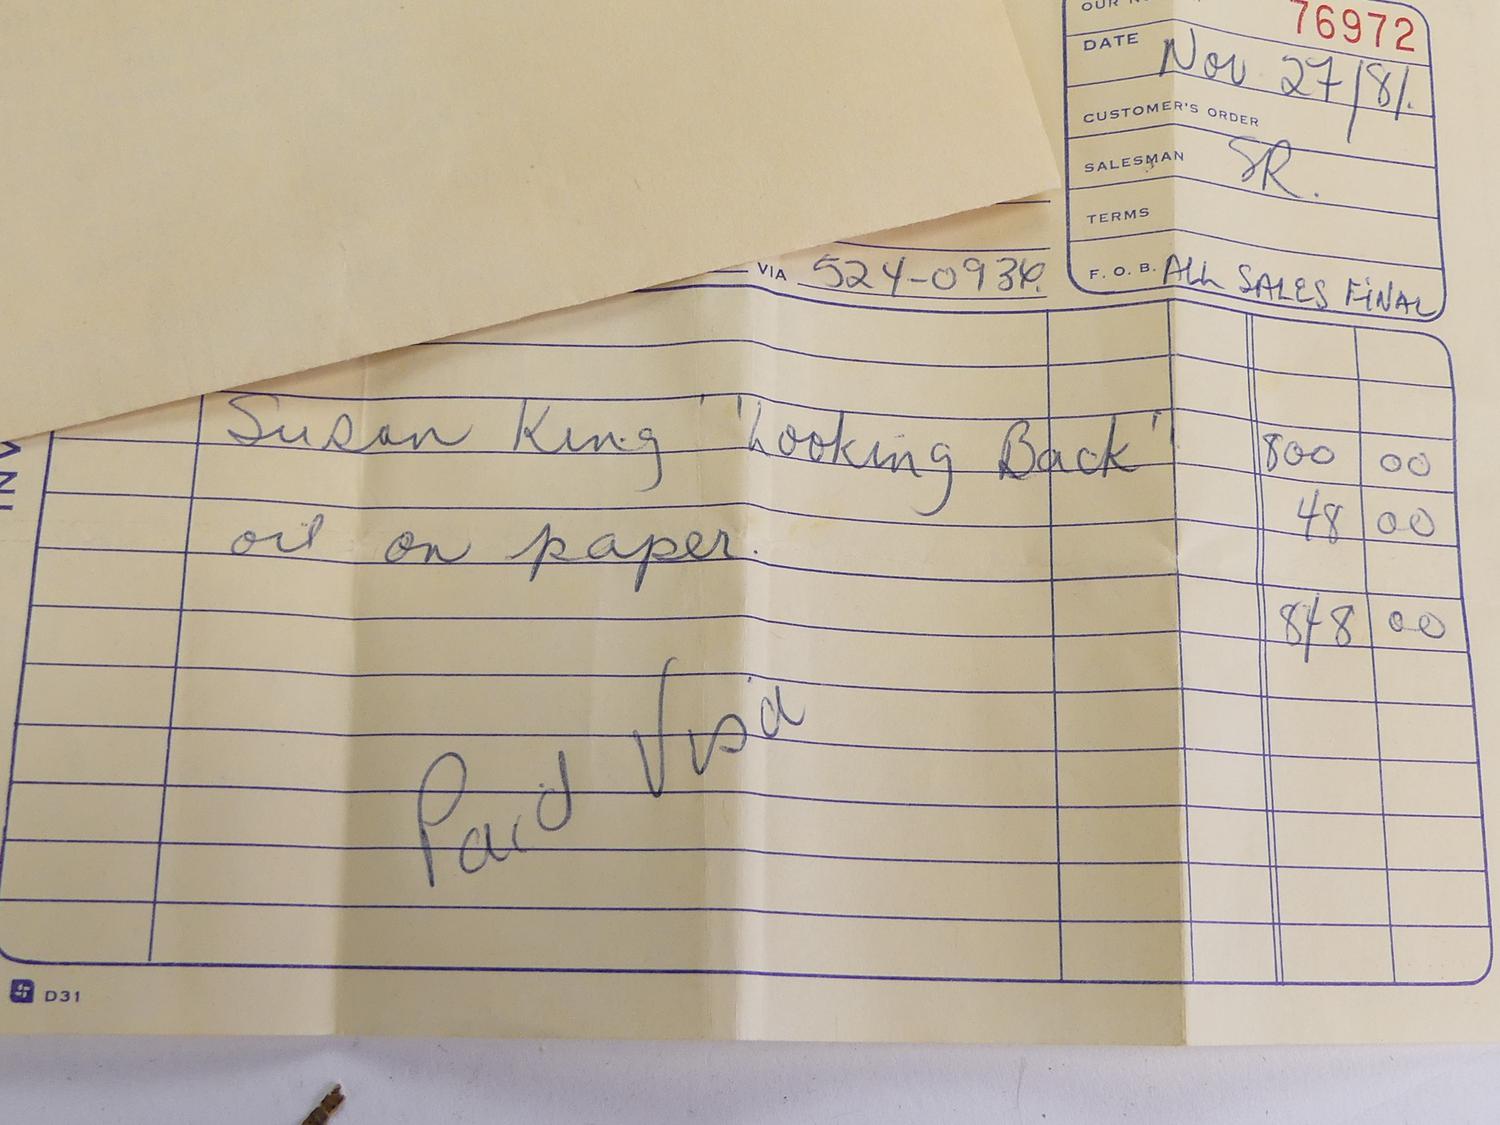 76972
DATE Nov 27/81.
CUSTOMER'S ORDER
SALESMAN SR.
TERMS
VIA 524-0934
F. O. B. ALL SALES FINAL
Susan King "Looking Back" 800 00
oil on paper. 48 00
848 00
Paid Visa
D31